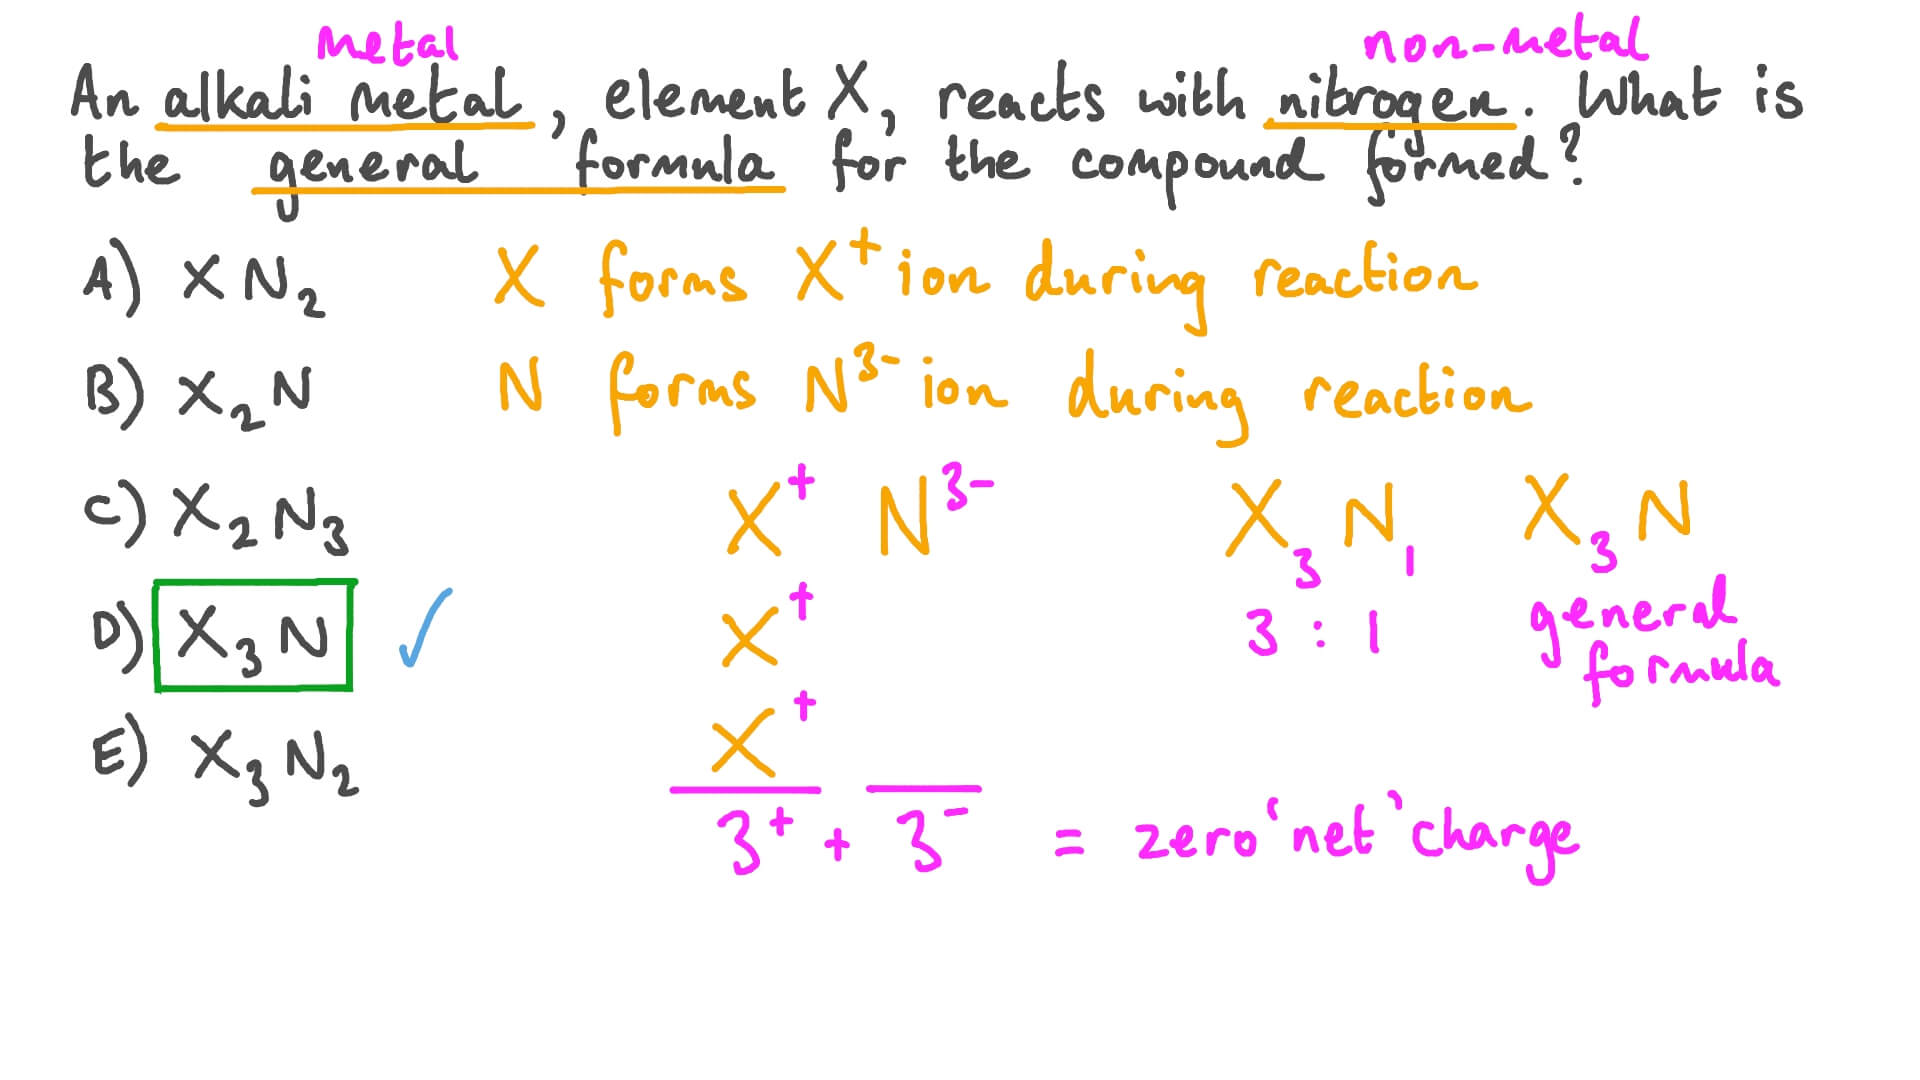 metal non-metal
An alkali metal, element X, reacts with nitrogen. What is
the general formula for the compound formed?
A) XN₂ X forms X⁺ ion during reaction
B) X₂N N forms N³⁻ ion during reaction
C) X₂N₃ X⁺ N³⁻ X₃N₁ X₃N
D) X₃N ✓ X⁺ 3 : 1 general
formula
E) X₃N₂ X⁺
3⁺ + 3⁻ = zero 'net' charge